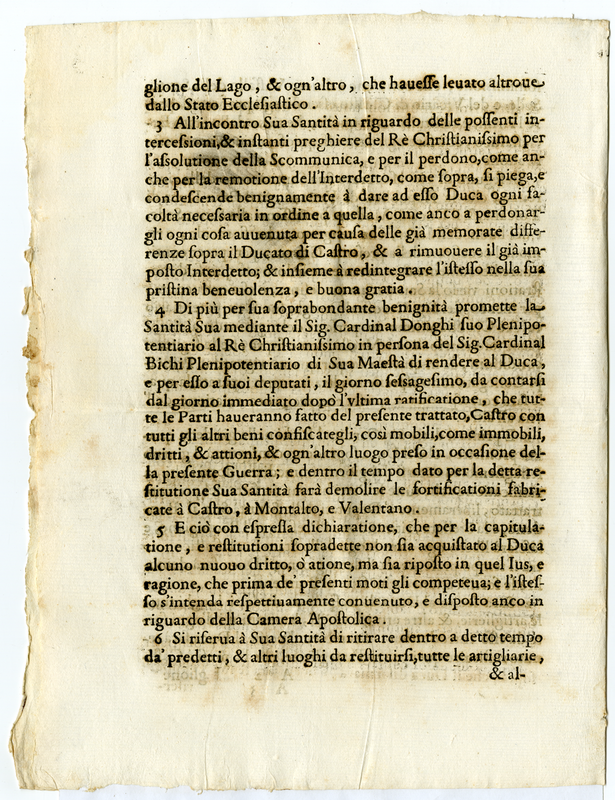 glione del Lago, & ogn'altro, che hauesse leuato altroue
dallo Stato Ecclesiastico.
3 All'incontro Sua Santità in riguardo delle possenti in-
tercessioni,& instanti preghiere del Rè Christianissimo per
l'assolutione della Scommunica, e per il perdono,come an-
che per la remotione dell'Interdetto, come sopra, si piega,e
condescende benignamente à dare ad esso Duca ogni fa-
coltà necessaria in ordine a quella, come anco a perdonar-
gli ogni cosa auuenuta per causa delle già memorate diffe-
renze sopra il Ducato di Castro, & a rimuouere il già im-
posto Interdetto; & insieme à redintegrare l'istesso nella sua
pristina beneuolenza, e buona gratia.
4 Di più per sua soprabondante benignità promette la
Santità Sua mediante il Sig. Cardinal Donghi suo Plenipo-
tentiario al Rè Christianissimo in persona del Sig.Cardinal
Bichi Plenipotentiario di Sua Maestà di rendere al Duca,
e per esso a suoi deputati, il giorno sessagesimo, da contarsi
dal giorno immediato dopò l'vltima ratificatione, che tut-
te le Parti haueranno fatto del presente trattato,Castro con
tutti gli altri beni confiscategli, così mobili,come immobili,
dritti, & attioni, & ogn'altro luogo preso in occasione del-
la presente Guerra; e dentro il tempo dato per la detta re-
stitutione Sua Santità farà demolire le fortificationi fabri-
cate à Castro, à Montalto, e Valentano.
5 E ciò con espressa dichiaratione, che per la capitula-
tione, e restitutioni sopradette non sia acquistato al Duca
alcuno nuouo dritto, ò atione, ma sia riposto in quel Ius, e
ragione, che prima de' presenti moti gli competeua; e l'istes-
so s'intenda respettiuamente conuenuto, e disposto anco in
riguardo della Camera Apostolica.
6 Si riserua à Sua Santità di ritirare dentro a detto tempo
da' predetti, & altri luoghi da restituirsi,tutte le artigliarie,
& al-